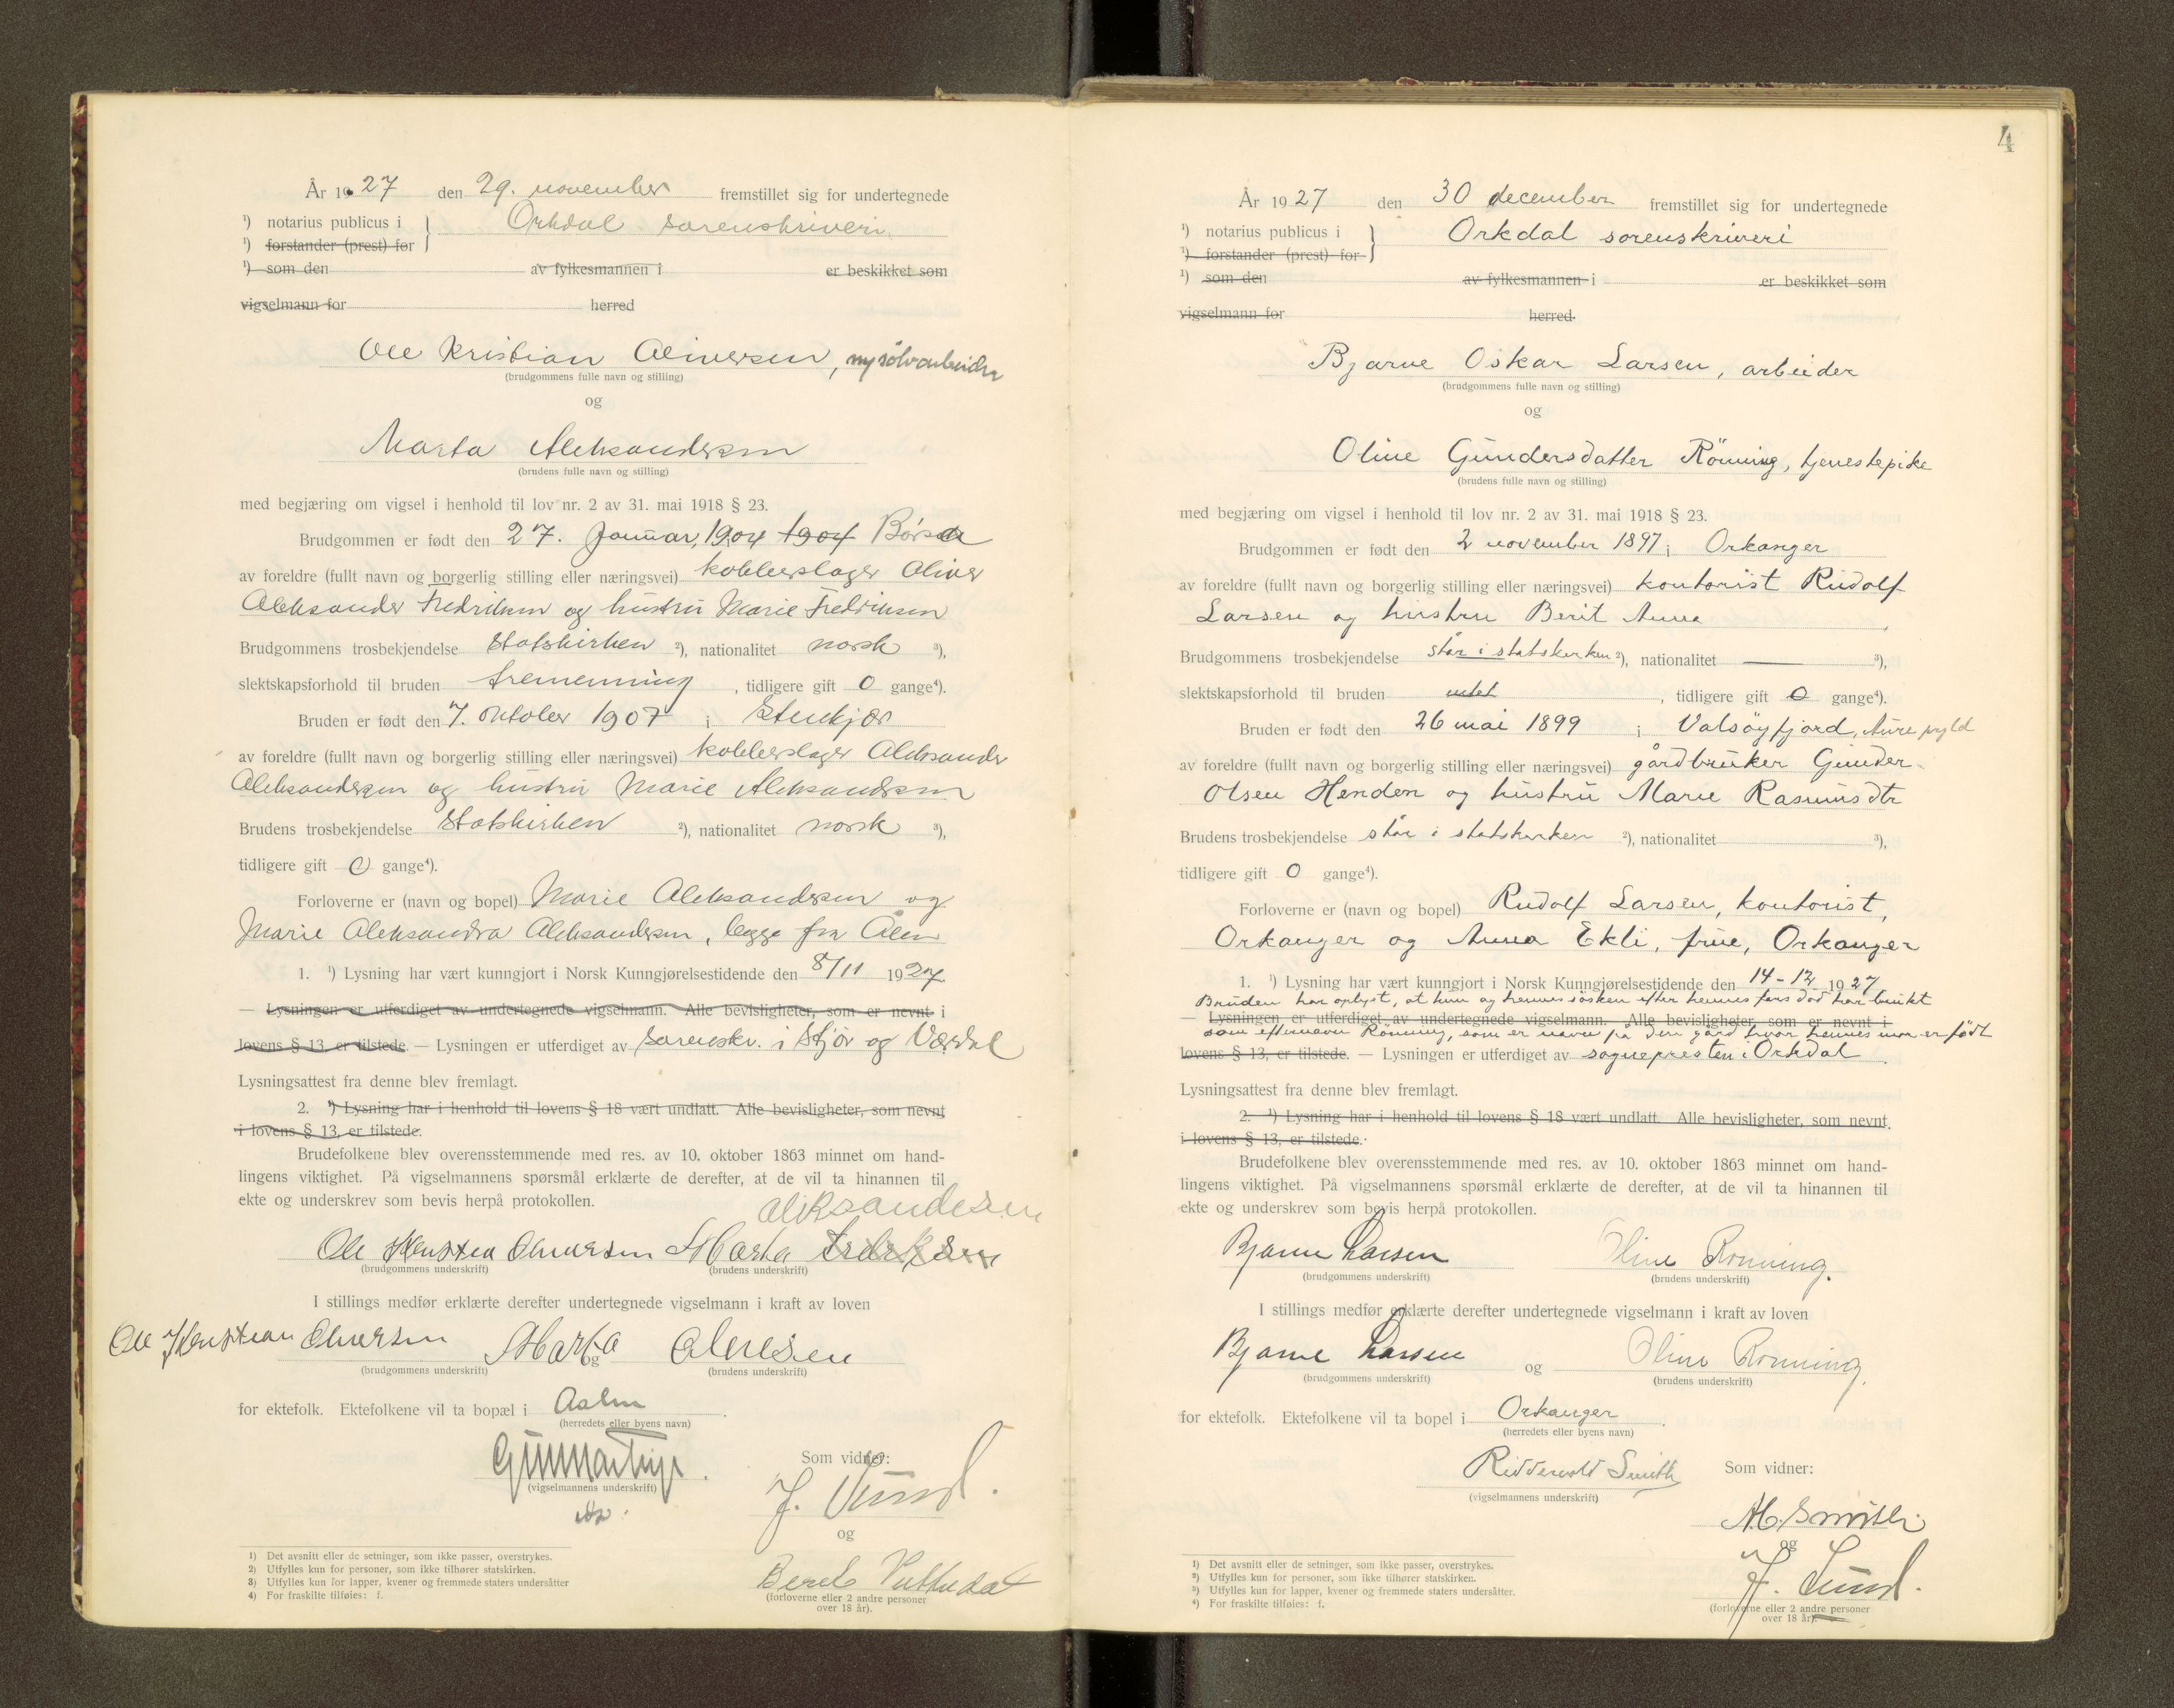 År 1927 den 29. november fremstillet sig for undertegnede
¹) notarius publicus i } Orkdal sorenskriveri
¹) forstander (prest) for
¹) som den av fylkesmannen i er beskikket som
vigselmann for herred
Ole Kristian Oliversen, nysølvarbeider
(brudgommens fulle navn og stilling)
og
Marta Aleksandersen
(brudens fulle navn og stilling)
med begjæring om vigsel i henhold til lov nr. 2 av 31. mai 1918 § 23.
Brudgommen er født den 27. Januar, 1904 1904 Børsa
av foreldre (fullt navn og borgerlig stilling eller næringsvei) kobberslager Oliver
Aleksander Fredriksen og hustru Marie Fredriksen
Brudgommens trosbekjendelse Statskirken ²), nationalitet norsk ³),
slektskapsforhold til bruden tremenning, tidligere gift 0 gange⁴).
Bruden er født den 7. oktober 1907 i Stenkjær
av foreldre (fullt navn og borgerlig stilling eller næringsvei) kobberslager Aleksander
Aleksandersen og hustru Marie Aleksandersen
Brudens trosbekjendelse Statskirken ²), nationalitet norsk ³),
tidligere gift 0 gange⁴).
Forloverne er (navn og bopel) Marie Aleksandersen og
Marie Aleksandra Aleksandersen, begge fra Ålen
1. ¹) Lysning har vært kunngjort i Norsk Kunngjørelsestidende den 8/11 1927
— Lysningen er utferdiget av undertegnede vigselmann. Alle bevisligheter, som er nevnt i
lovens § 13, er tilstede. — Lysningen er utferdiget av sorenskr. i Stjør og Værdal
Lysningsattest fra denne blev fremlagt.
2. ¹) Lysning har i henhold til lovens § 18 vært undlatt. Alle bevisligheter, som nevnt
i lovens § 13, er tilstede.
Brudefolkene blev overensstemmende med res. av 10. oktober 1863 minnet om hand-
lingens viktighet. På vigselmannens spørsmål erklærte de derefter, at de vil ta hinannen til
ekte og underskrev som bevis herpå protokollen.
Aleksandersen
Ole Kristian Oliversen Marta Fredriksen
(brudgommens underskrift) (brudens underskrift)
I stillings medfør erklærte derefter undertegnede vigselmann i kraft av loven
Ole Kristian Oliversen og Marta Olivesen
(brudgommens underskrift) (brudens underskrift)
for ektefolk. Ektefolkene vil ta bopæl i Aalen
(herredets eller byens navn)
Som vidner:
(vigselmannens underskrift)
J. Lund.
og
Beret
(forloverne eller 2 andre personer
over 18 år).
1) Det avsnitt eller de setninger, som ikke passer, overstrykes.
2) Utfylles kun for personer, som ikke tilhører statskirken.
3) Utfylles kun for lapper, kvener og fremmede staters undersåtter
4) For fraskilte tilføies: f.
4
År 1927 den 30 december fremstillet sig for undertegnede
¹) notarius publicus i } Orkdal sorenskriveri
¹) forstander (prest) for
¹) som den av fylkesmannen i er beskikket som
vigselmann for herred.
Bjarne Oskar Larsen, arbeider
(brudgommens fulle navn og stilling)
og
Oline Gundersdatter Rönning, tjenestepike
(brudens fulle navn og stilling)
med begjæring om vigsel i henhold til lov nr. 2 av 31. mai 1918 § 23.
Brudgommen er født den 2 november 1897 i Orkanger
av foreldre (fullt navn og borgerlig stilling eller næringsvei) kontorist Rudolf
Larsen og hustru Berit Anna
Brudgommens trosbekjendelse står i statskirken ²), nationalitet — ³),
slektskapsforhold til bruden intet, tidligere gift 0 gange⁴).
Bruden er født den 26 mai 1899 i Valsöyfjord, Aure prgld
av foreldre (fullt navn og borgerlig stilling eller næringsvei) gårdbruker Gunder
Olsen Henden og hustru Marie Rasmusdtr
Brudens trosbekjendelse står i statskirken ²), nationalitet ³),
tidligere gift 0 gange⁴).
Forloverne er (navn og bopel) Rudolf Larsen, kontorist,
Orkanger og Anna Ekli, frue, Orkanger
1. ¹) Lysning har vært kunngjort i Norsk Kunngjørelsestidende den 14-12 1927
Bruden har oplyst, at hun og hennes sösken efter hennes fars död har brukt
— Lysningen er utferdiget av undertegnede vigselmann. Alle bevisligheter, som er nevnt i
som efternavn Rönning, som er navn på den gård hvor hennes mor er födt
lovens § 13, er tilstede. — Lysningen er utferdiget av sognepresten i Orkdal
Lysningsattest fra denne blev fremlagt.
2. ¹) Lysning har i henhold til lovens § 18 vært undlatt. Alle bevisligheter, som nevnt
i lovens § 13, er tilstede.
Brudefolkene blev overensstemmende med res. av 10. oktober 1863 minnet om hand-
lingens viktighet. På vigselmannens spørsmål erklærte de derefter, at de vil ta hinannen til
ekte og underskrev som bevis herpå protokollen.
Bjarne Larsen Oline Rönning.
(brudgommens underskrift) (brudens underskrift)
I stillings medfør erklærte derefter undertegnede vigselmann i kraft av loven
Bjarne Larsen og Oline Rönning.
(brudgommens underskrift) (brudens underskrift)
for ektefolk. Ektefolkene vil ta bopel i Orkanger.
(herredets eller byens navn)
Ridderwold Smith Som vidner:
(vigselmannens underskrift)
M. Smith
og
J. Lund.
(forloverne eller 2 andre personer
over 18 år).
1) Det avsnitt eller de setninger, som ikke passer, overstrykes.
2) Utfylles kun for personer, som ikke tilhører statskirken.
3) Utfylles kun for lapper, kvener og fremmede staters undersåtter.
4) For fraskilte tilføies: f.